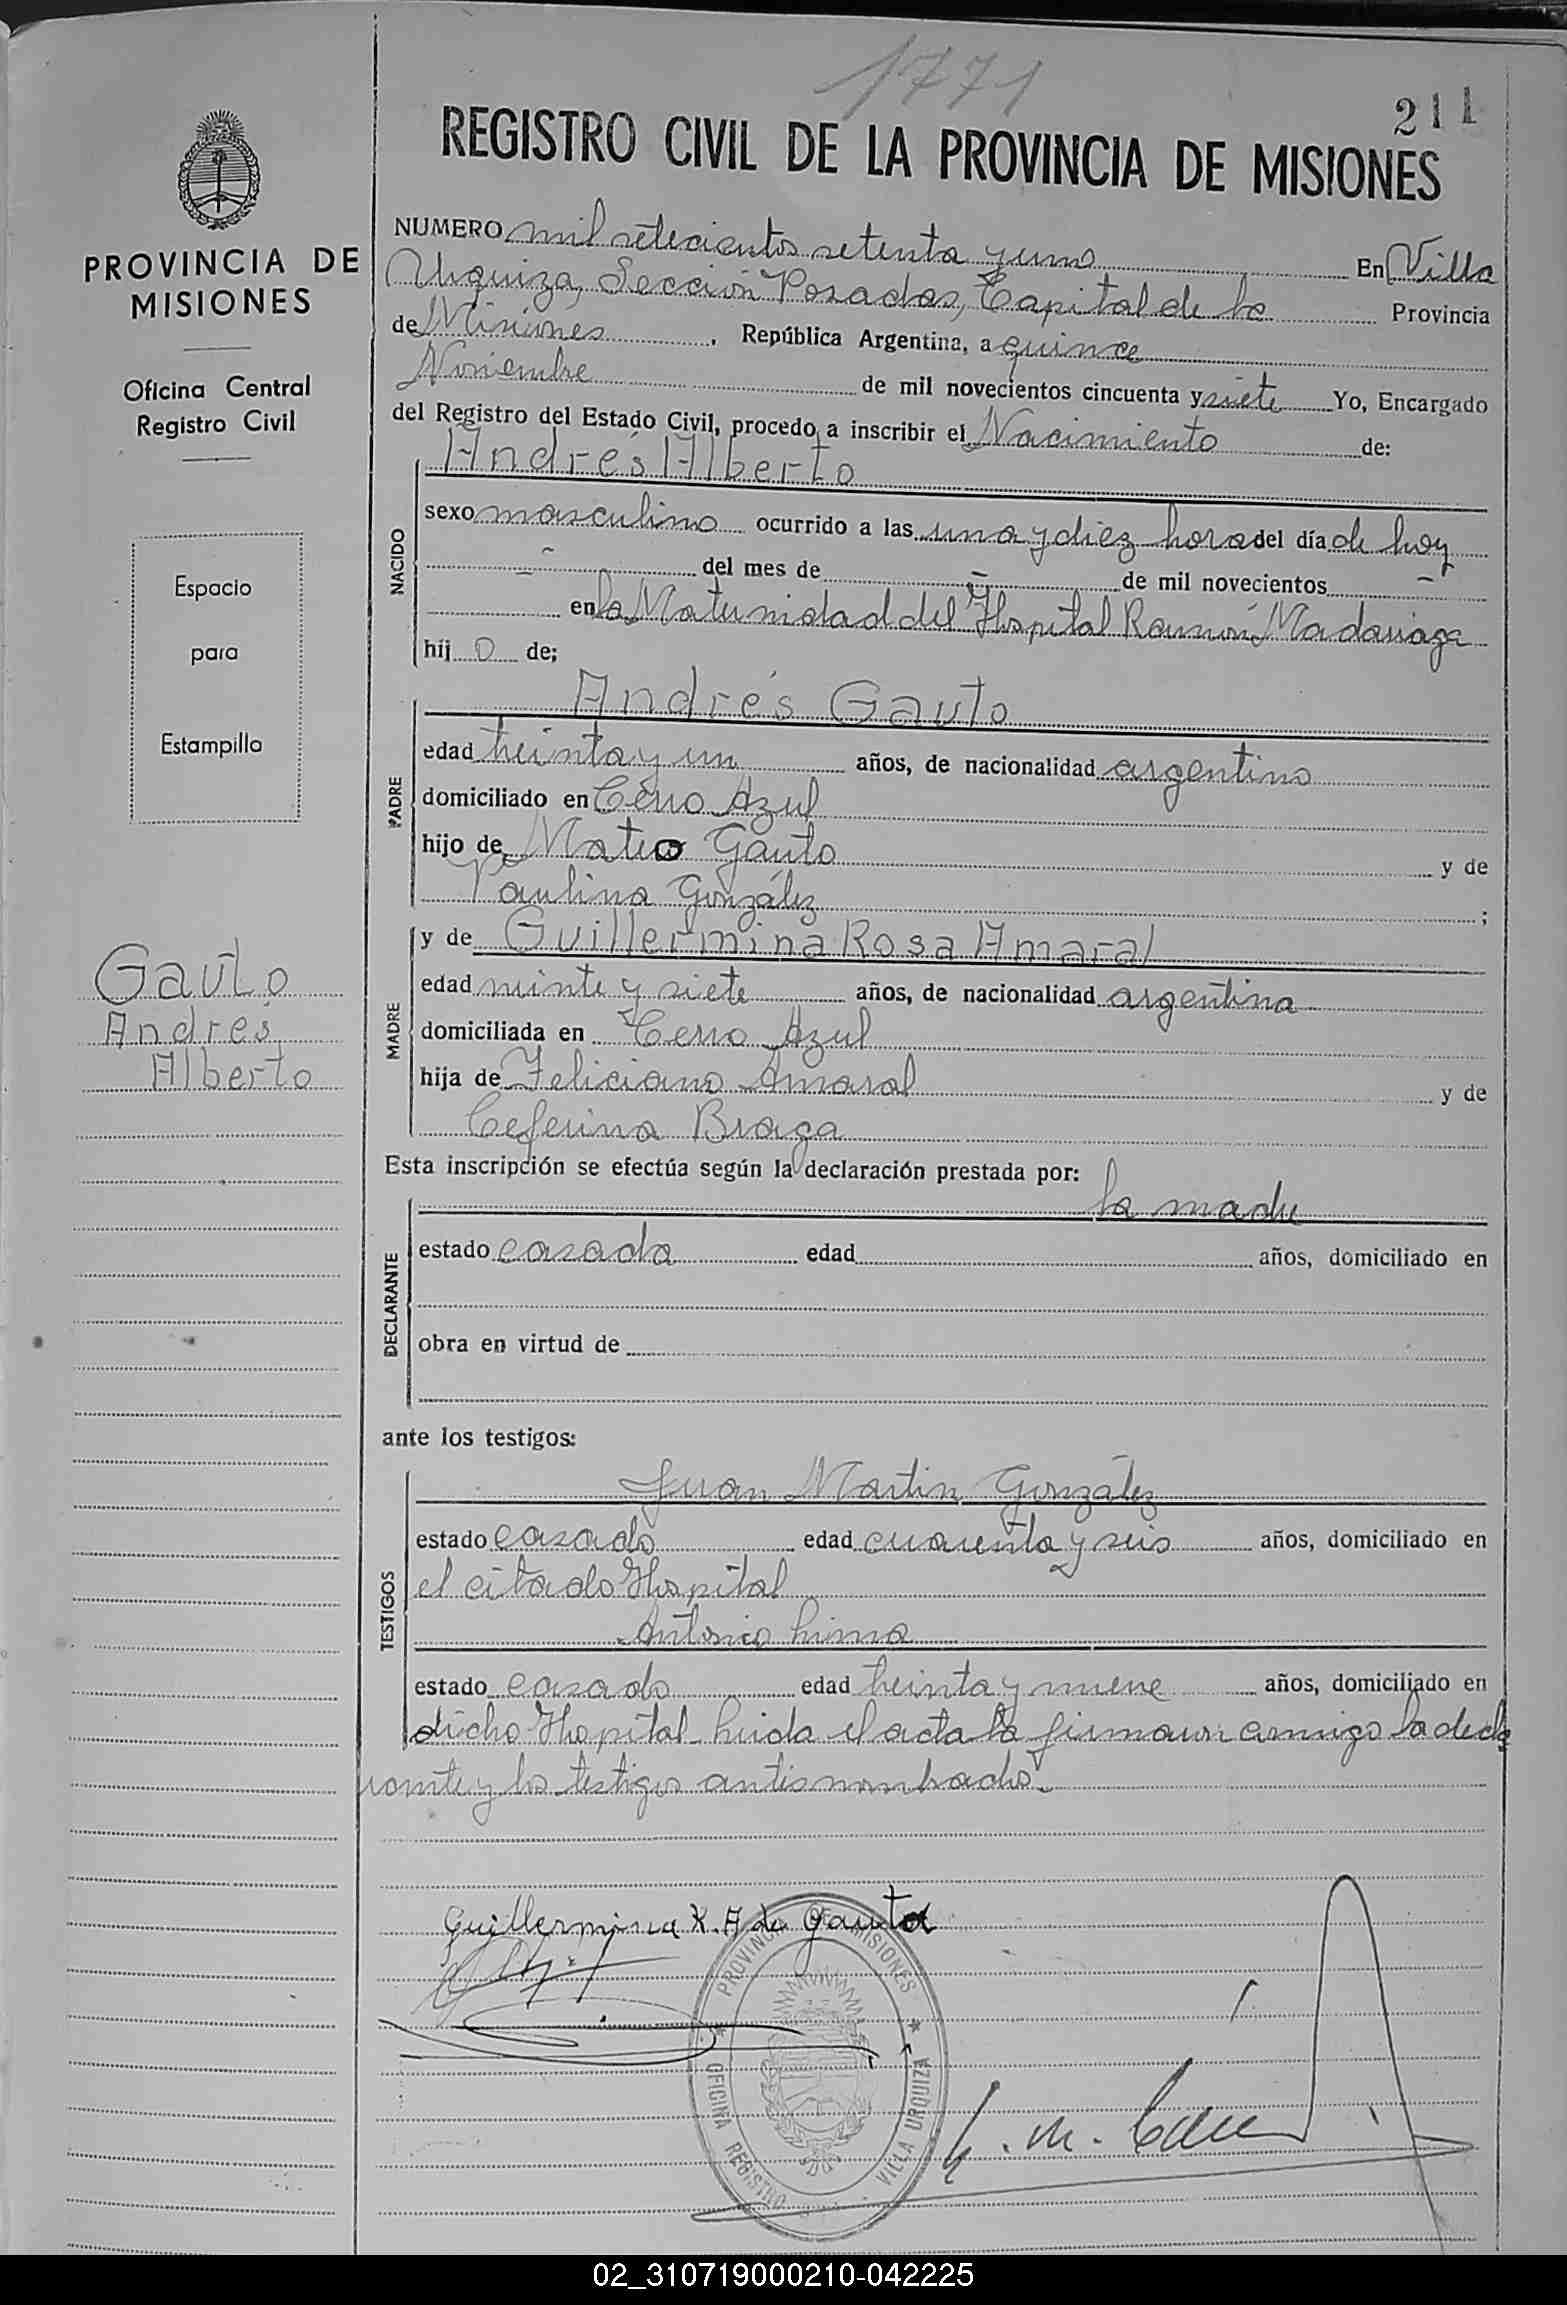 1771
211
REGISTRO CIVIL DE LA PROVINCIA DE MISIONES
PROVINCIA DE
MISIONES
Oficina Central
Registro Civil
Espacio
para
Estampilla
Gauto
Andrés
Alberto
NUMERO mil setecientos setenta y uno En Villa
Urquiza, Sección Posadas, Capital de la Provincia
de Misiones, República Argentina, a quince
Noviembre de mil novecientos cincuenta y siete Yo, Encargado
del Registro del Estado Civil, procedo a inscribir el Nacimiento de:
NACIDO
Andrés Alberto
sexo masculino ocurrido a las una y diez hora del día de hoy
- del mes de - de mil novecientos -
en la Maternidad del Hospital Ramón Madariaga
hij o de;
PADRE
Andrés Gauto
edad treinta y un años, de nacionalidad argentino
domiciliado en Cerro Azul
hijo de Mateo Gauto y de
Paulina González ;
MADRE
y de Guillermina Rosa Amaral
edad veinte y siete años, de nacionalidad argentina
domiciliada en Cerro Azul
hija de Feliciano Amaral y de
Ceferina Braga
Esta inscripción se efectúa según la declaración prestada por:
DECLARANTE
la madre
estado casada edad años, domiciliado en
obra en virtud de
ante los testigos:
TESTIGOS
Juan Martin González
estado casado edad cuarenta y seis años, domiciliado en
el citado Hospital
Antonio Lima
estado casado edad treinta y nueve años, domiciliado en
dicho Hospital leida el acta la firmaron conmigo la decla
rante y los testigos antes nombrados.
Guillermina R. A de Gauto
PROVINCIA DE MISIONES
OFICINA REGISTRO VILLA URQUIZA
02_310719000210-042225